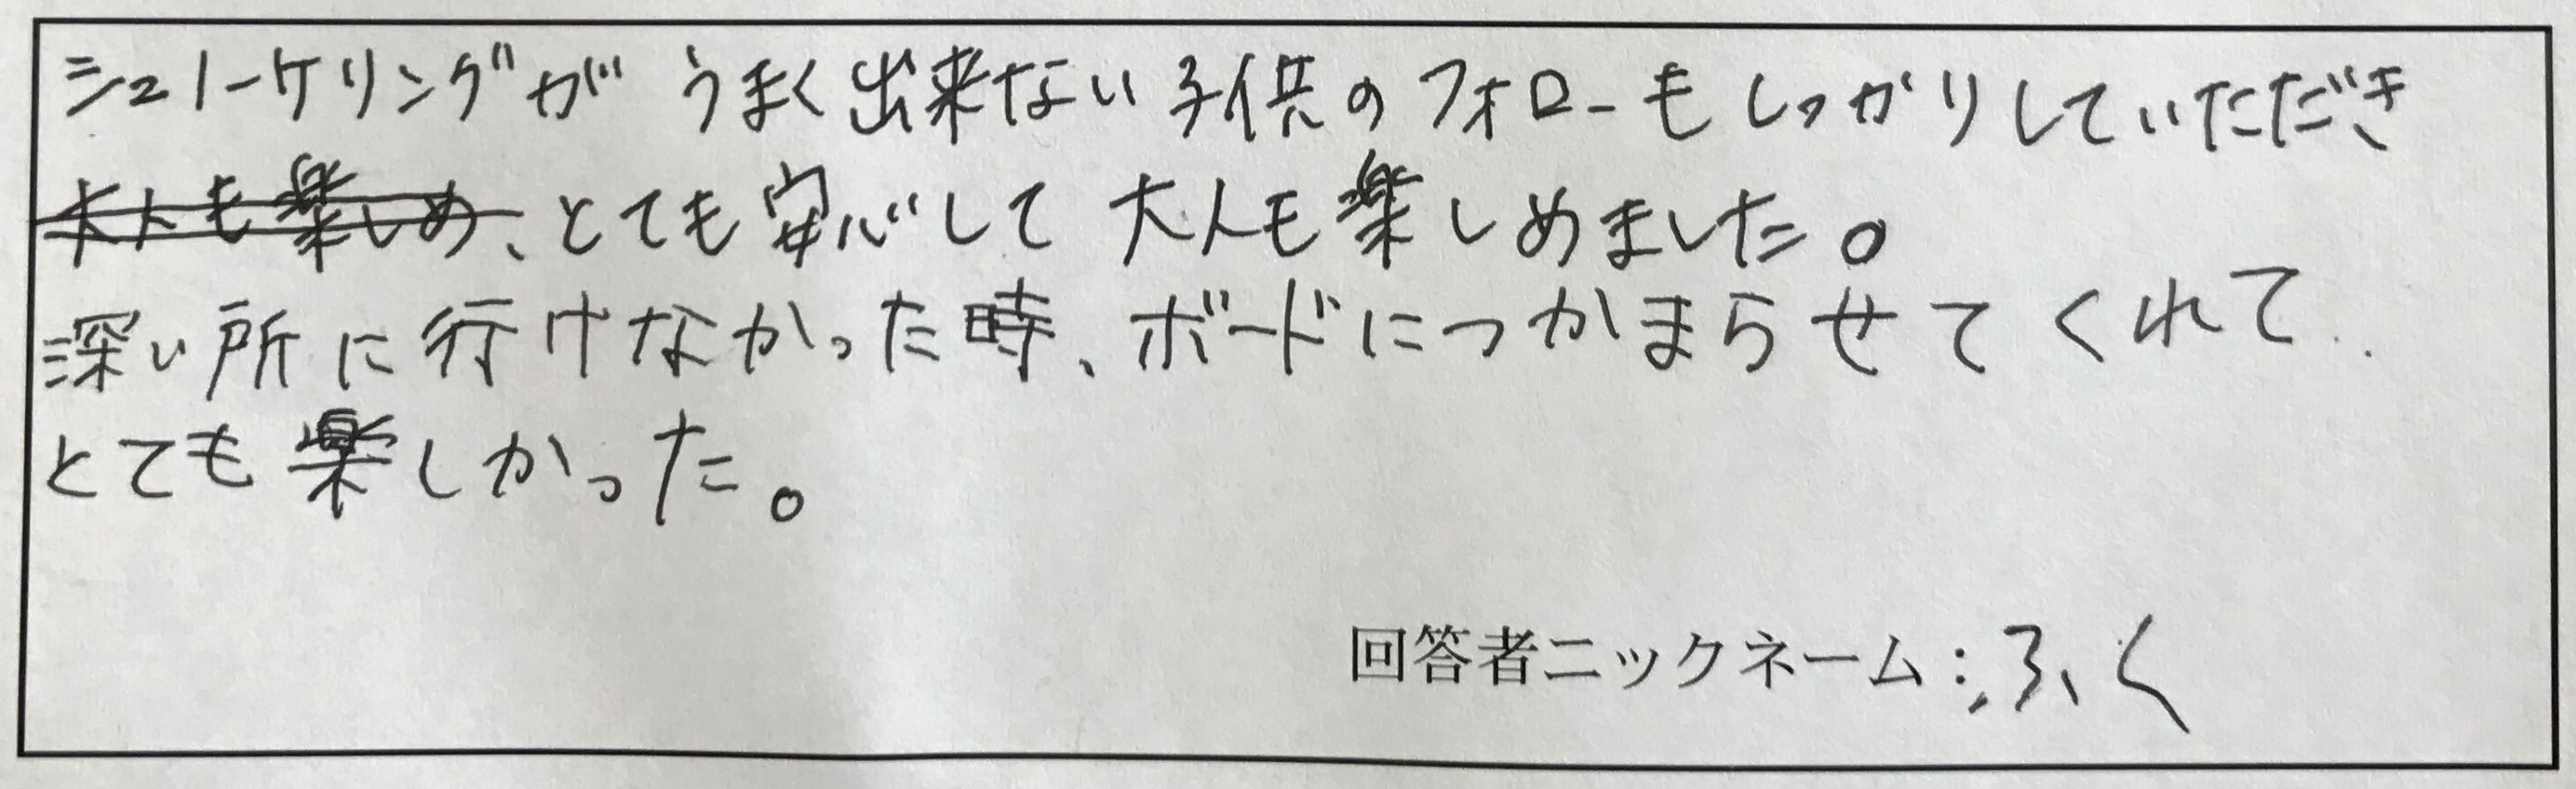 シュノーケリングがうまく出来ない子供のフォローもしっかりしていただき
大人も楽しめ、とても安心して大人も楽しめました。
深い所に行けなかった時、ボードにつかまらせてくれて
とても楽しかった。
回答者ニックネーム:ふく